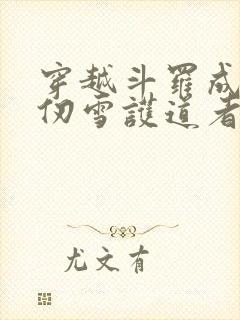 穿越斗羅成
仞雪護道者
尤文有